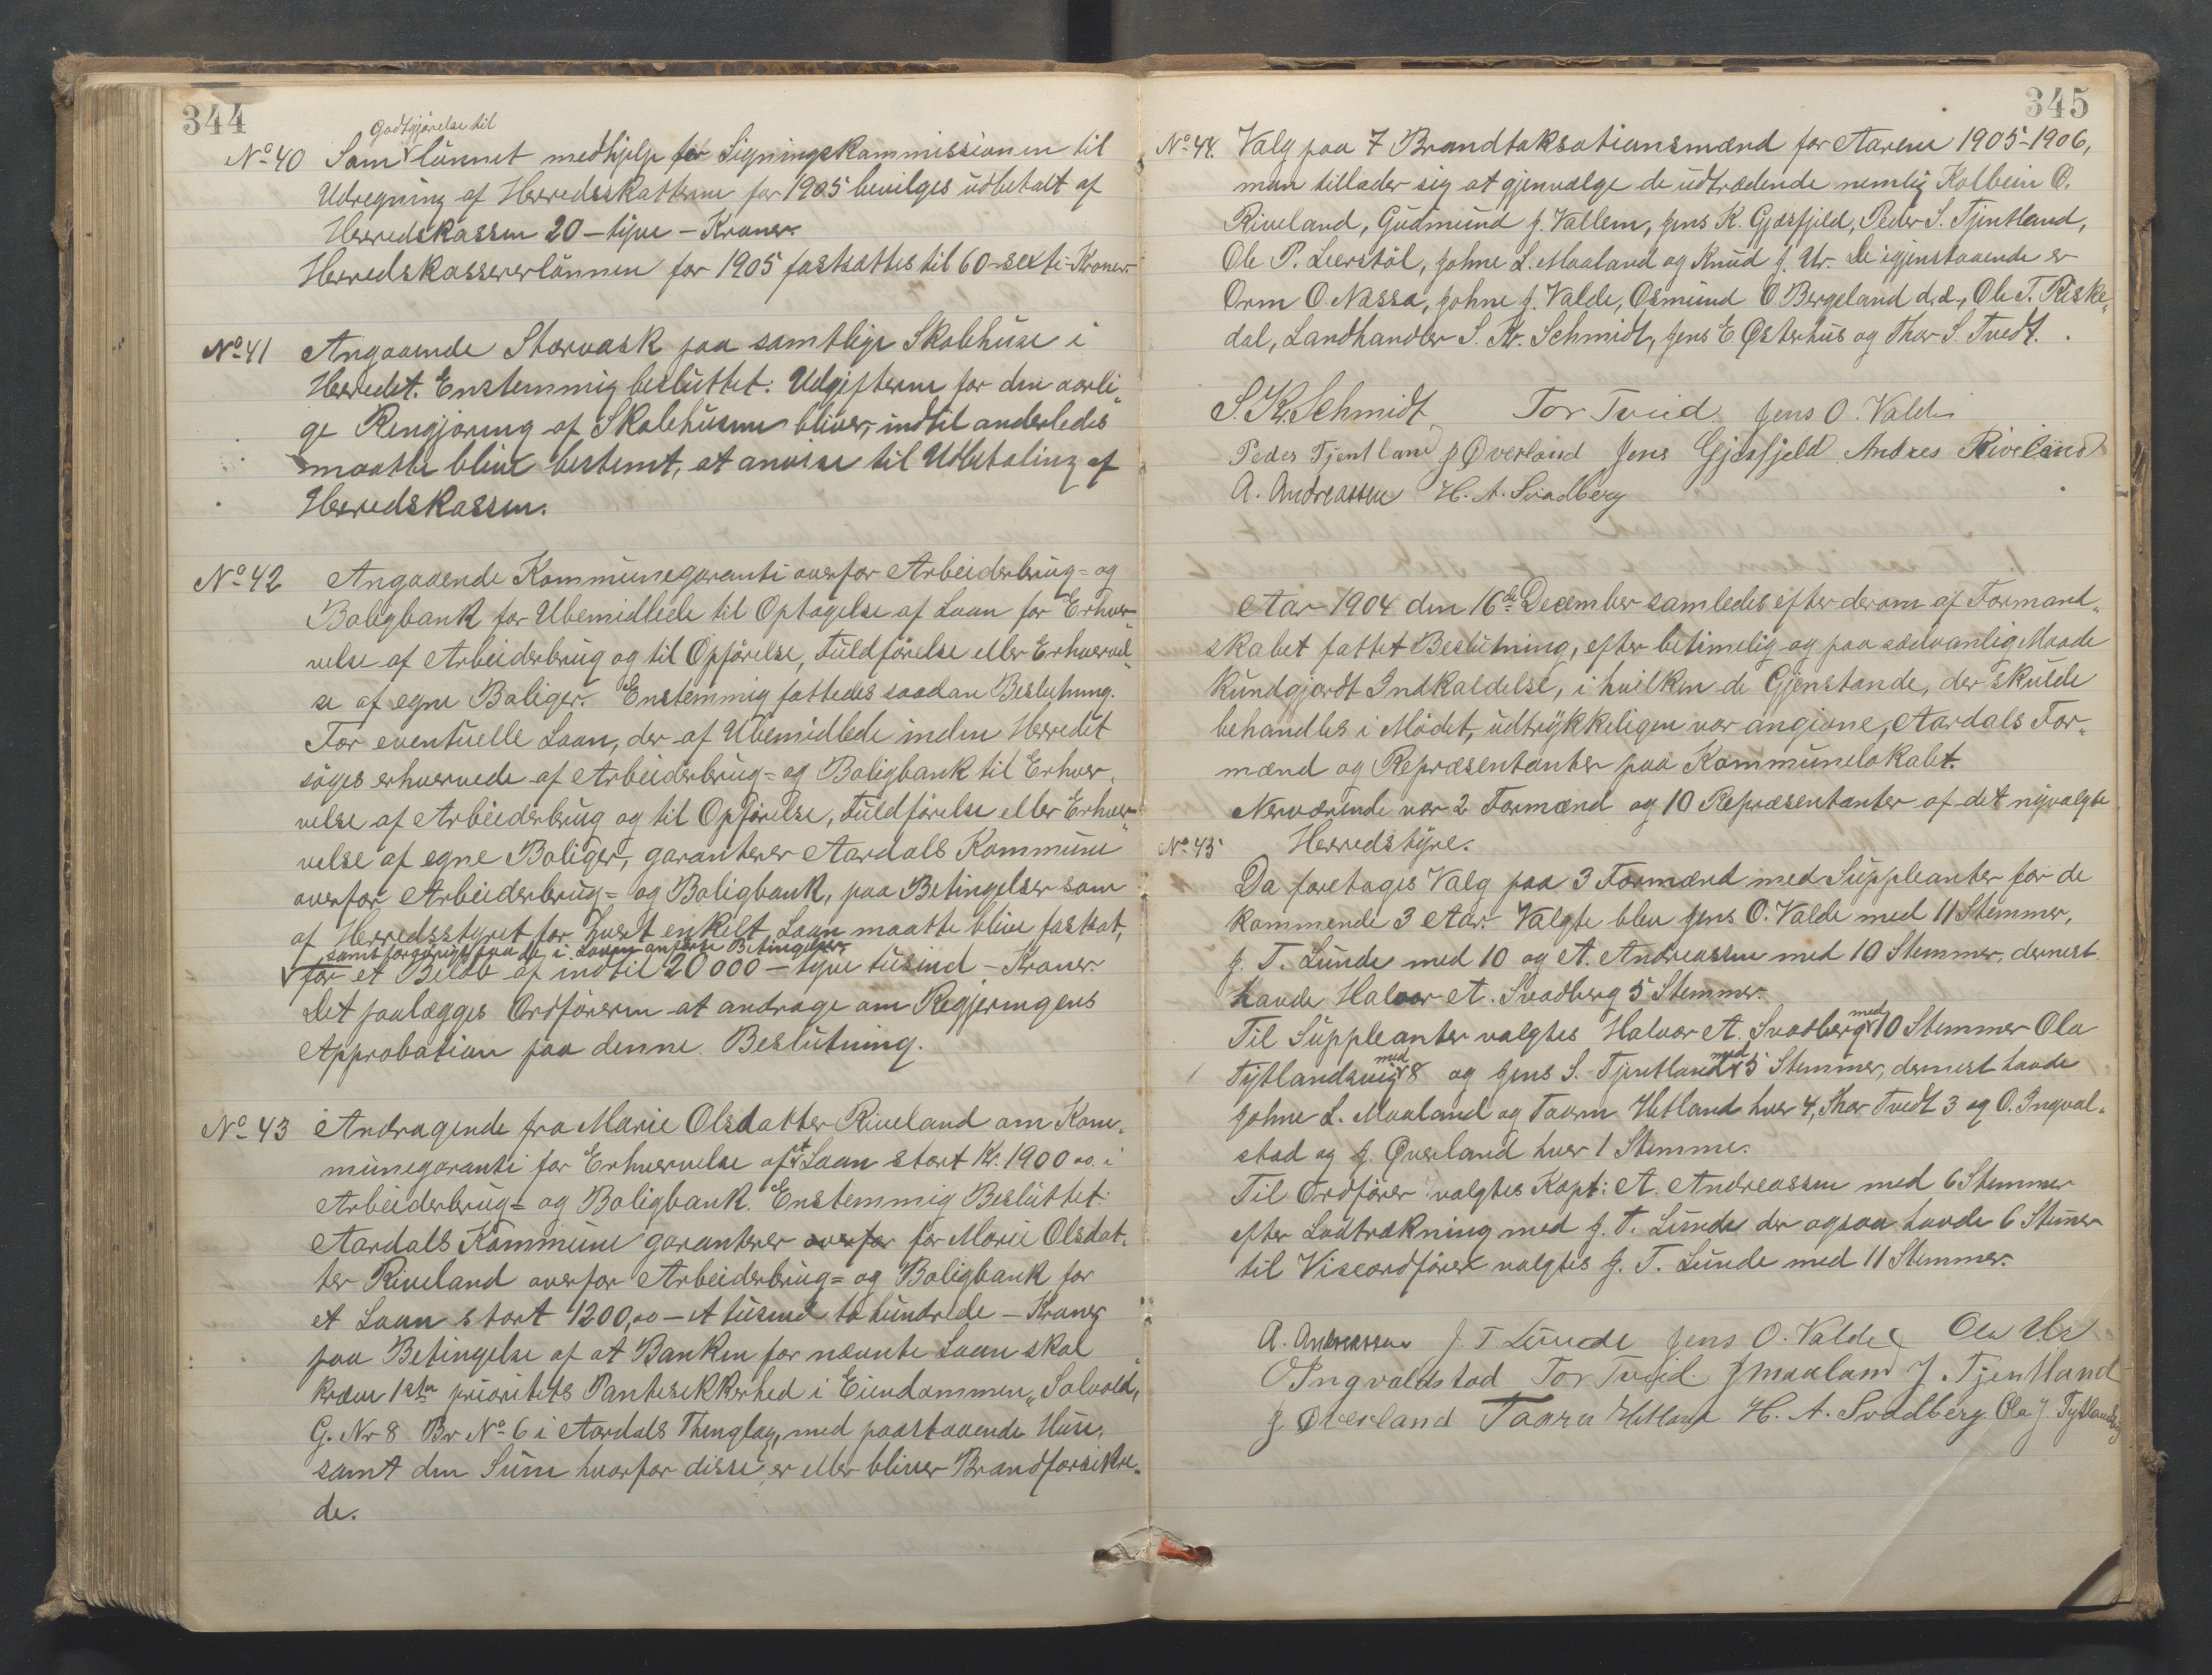 344
Godtgjörelse til
No 40 Som lönnet medhjelp for Ligningskommissionen til
Udregning af Herredsskatterne for 1905 bevilges udbetalt af
Herredskassen 20 – tyve – Kroner.
Herredskassererlönnen for 1905 fastsattes til 60 – sexti – Kroner.
No 41 Angaaende Storvask paa samtlige Skolehuse i
Herredet. Enstemmig besluttet: Udgifterne for den aarli„
ge Rengjöring af Skolehusene bliver, indtil anderledes
maatte blive bestemt, at anvise til Udbetaling af
Herredskassen.
No 42 Angaaende Kommunegaranti overfor Arbeiderbrug= og
Boligbank for Ubemidlede til Optagelse af Laan for Erhver„
velse af Arbeiderbrug og til Opförelse, Fuldförelse eller Erhvervel„
se af egne Boliger. Enstemmig fattedes saadan Beslutning.
For eventuelle Laan, der af Ubemidlede inden Herredet
söges erhvervede af Arbeiderbrug= og Boligbank til Erhver„
velse af Arbeiderbrug og til Opförelse, Fuldförelse eller Erhver„
velse af egne Boliger, garanterer Aardals Kommune
overfor Arbeiderbrug= og Boligbank, paa Betingelser som
af Herredsstyret for hvert enkelt Laan maatte blive fastsat,
samt forövrigt paa de i Loven anförte Betingelser
for et Belöb af indtil 20000 – tyve tusind – Kroner.
Det paalægges Ordföreren at andrage om Regjeringens
Approbation paa denne Beslutning.
No 43 Andragende fra Marie Olsdatter Riveland om Kom„
munegaranti for Erhvervelse af et Laan stort Kr. 1900 oo. i
Arbeiderbrug= og Boligbank. Enstemmig Besluttet:
Aardals Kommune garanterer overfor for Marie Olsdat„
ter Riveland overfor Arbeiderbrug= og Boligbank for
et Laan stort 1200,oo – et tusind to hundrede – Kroner
paa Betingelse af at Banken for nævnte Laan skal
kræve 1ste prioritets Pantesikkerhed i Eiendommen „Solvold„
G. Nr 8 Br No 6 i Aardals Thinglag, med paastaaende Huse,
samt den Sum hvorfor disse er eller bliver Brandforsikre„
de.
345
No 44. Valg paa 7 Brandtaksationsmænd for Aarene 1905-1906,
man tillader sig at gjenvælge de udtrædende nemlig Kolbein O.
Riveland, Gudmund J. Vallem, Jens K. Gjesfjeld, Peder S. Tjentland,
Ole P. Leerstöl, Johne L. Maaland og Knud J. Ur. De igjenstaaende er
Orm O. Nessa, Johne J. Valde, Osmund O. Bergeland d.æ., Ole T. Riske„
dal, Landhandler S. Kr. Schmidt, Jens E. Østerhus og Thor S. Tvedt.
S. Kr. Schmidt Tor Tveid Jens O. Valde
Peder Tjentland J Øverland Jens Gjesfjeld Andres Riveland
A. Andreassen H. A. Svadberg
Aar 1904 den 16de December samledes efter derom af Formand„
skabet fattet Beslutning, efter betimelig og paa sædvanlig Maade
kundgjordt Indkaldelse, i hvilken de Gjenstande, der skulde
behandles i Mödet, udtrykkeligen var angivne, Aardals For„
mænd og Repræsentanter paa Kommunelokalet.
Nerværende var 2 Formænd og 10 Repræsentanter af det nyvalgte
Herredstyre.
No 45
Da foretoges Valg paa 3 Formænd med Suppleanter for de
kommende 3 Aar. Valgte blev Jens O. Valde med 11 Stemmer,
J. T. Lunde med 10 og A. Andreassen med 10 Stemmer, dernest
havde Halvor A. Svadberg 5 Stemmer.
Til Suppleanter valgtes Halvor A. Svadberg med 10 Stemmer Ola
Tytlandsvig med 8 og Jens S. Tjentland med 5 Stemmer, dernest havde
Johne L. Maaland og Taarn Hetland hver 4, Thor Tvedt 3 og O. Ingval„
stad og J. Øverland hver 1 Stemme.
Til Ordförer valgtes Kapt: A. Andreassen med 6 Stemmer
efter Lodtrækning med J. T. Lunde der ogsaa havde 6 Stemer
til Viseordförer valgtes J. T. Lunde med 11 Stemmer.
A. Andreassen J. T Lunde Jens O. Valde Ola Ur
O Ingvaldstad Tor Tveid. J Maaland J. Tjentland
J Øverland Taarn Hetland H. A. Svadberg Ola J. Tytlandsvig